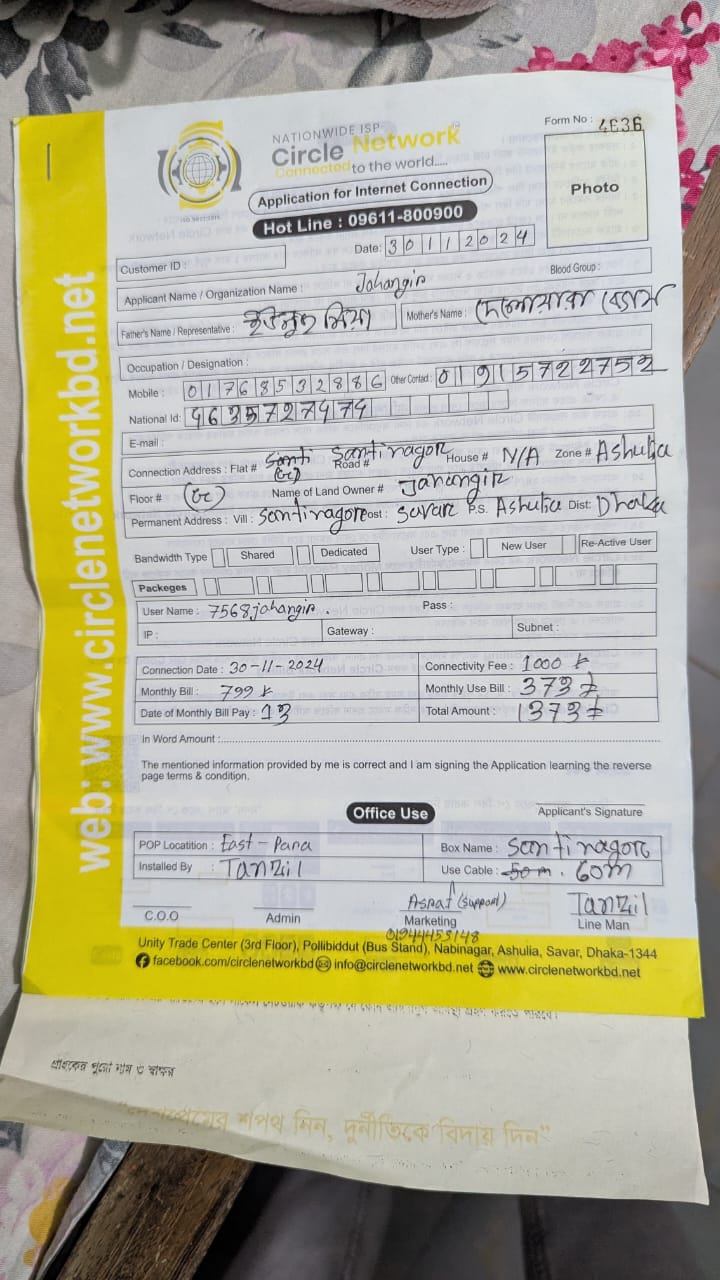 Form No : 4636
NATIONWIDE ISP
Circle Network
Connected to the world.....
Application for Internet Connection
Photo
Hot Line : 09611-800900
Date: 30112024
Customer ID :
Blood Group :
Applicant Name / Organization Name : Jahangir
Father's Name / Representative : ইউনুছ মিয়া Mother's Name : দেলোয়ারা বেগম
Occupation / Designation :
Mobile : 01768532886 Other Contact : 01915722752
National Id: 4635727474
E-mail :
Connection Address : Flat # Santi Road # Santinagor House # N/A Zone # Ashulia
Floor # Name of Land Owner # Jahangir
Permanent Address : Vill : Santinagor Post : Savar P.S. Ashulia Dist: Dhaka
Bandwidth Type Shared Dedicated User Type : New User Re-Active User
Packeges
User Name : 7568jahangir . Pass :
IP : Gateway : Subnet :
Connection Date : 30-11-2024 Connectivity Fee : 1000
Monthly Bill : 799 Monthly Use Bill : 373
Date of Monthly Bill Pay : 13 Total Amount : 1373
In Word Amount :
The mentioned information provided by me is correct and I am signing the Application learning the reverse
page terms & condition.
Office Use
Applicant's Signature
POP Locatition : East-Para Box Name : Santinagor
Installed By : Tanzil Use Cable : 50m . 60m
Asraf (Support) Tanzil
C.O.O Admin Marketing Line Man
01944453148
Unity Trade Center (3rd Floor), Pollibiddut (Bus Stand), Nabinagar, Ashulia, Savar, Dhaka-1344
facebook.com/circlenetworkbd info@circlenetworkbd.net www.circlenetworkbd.net
web: www.circlenetworkbd.net
গ্রাহকের পুরো নাম ও স্বাক্ষর
শপথ নিন, দুর্নীতিকে বিদায় দিন"